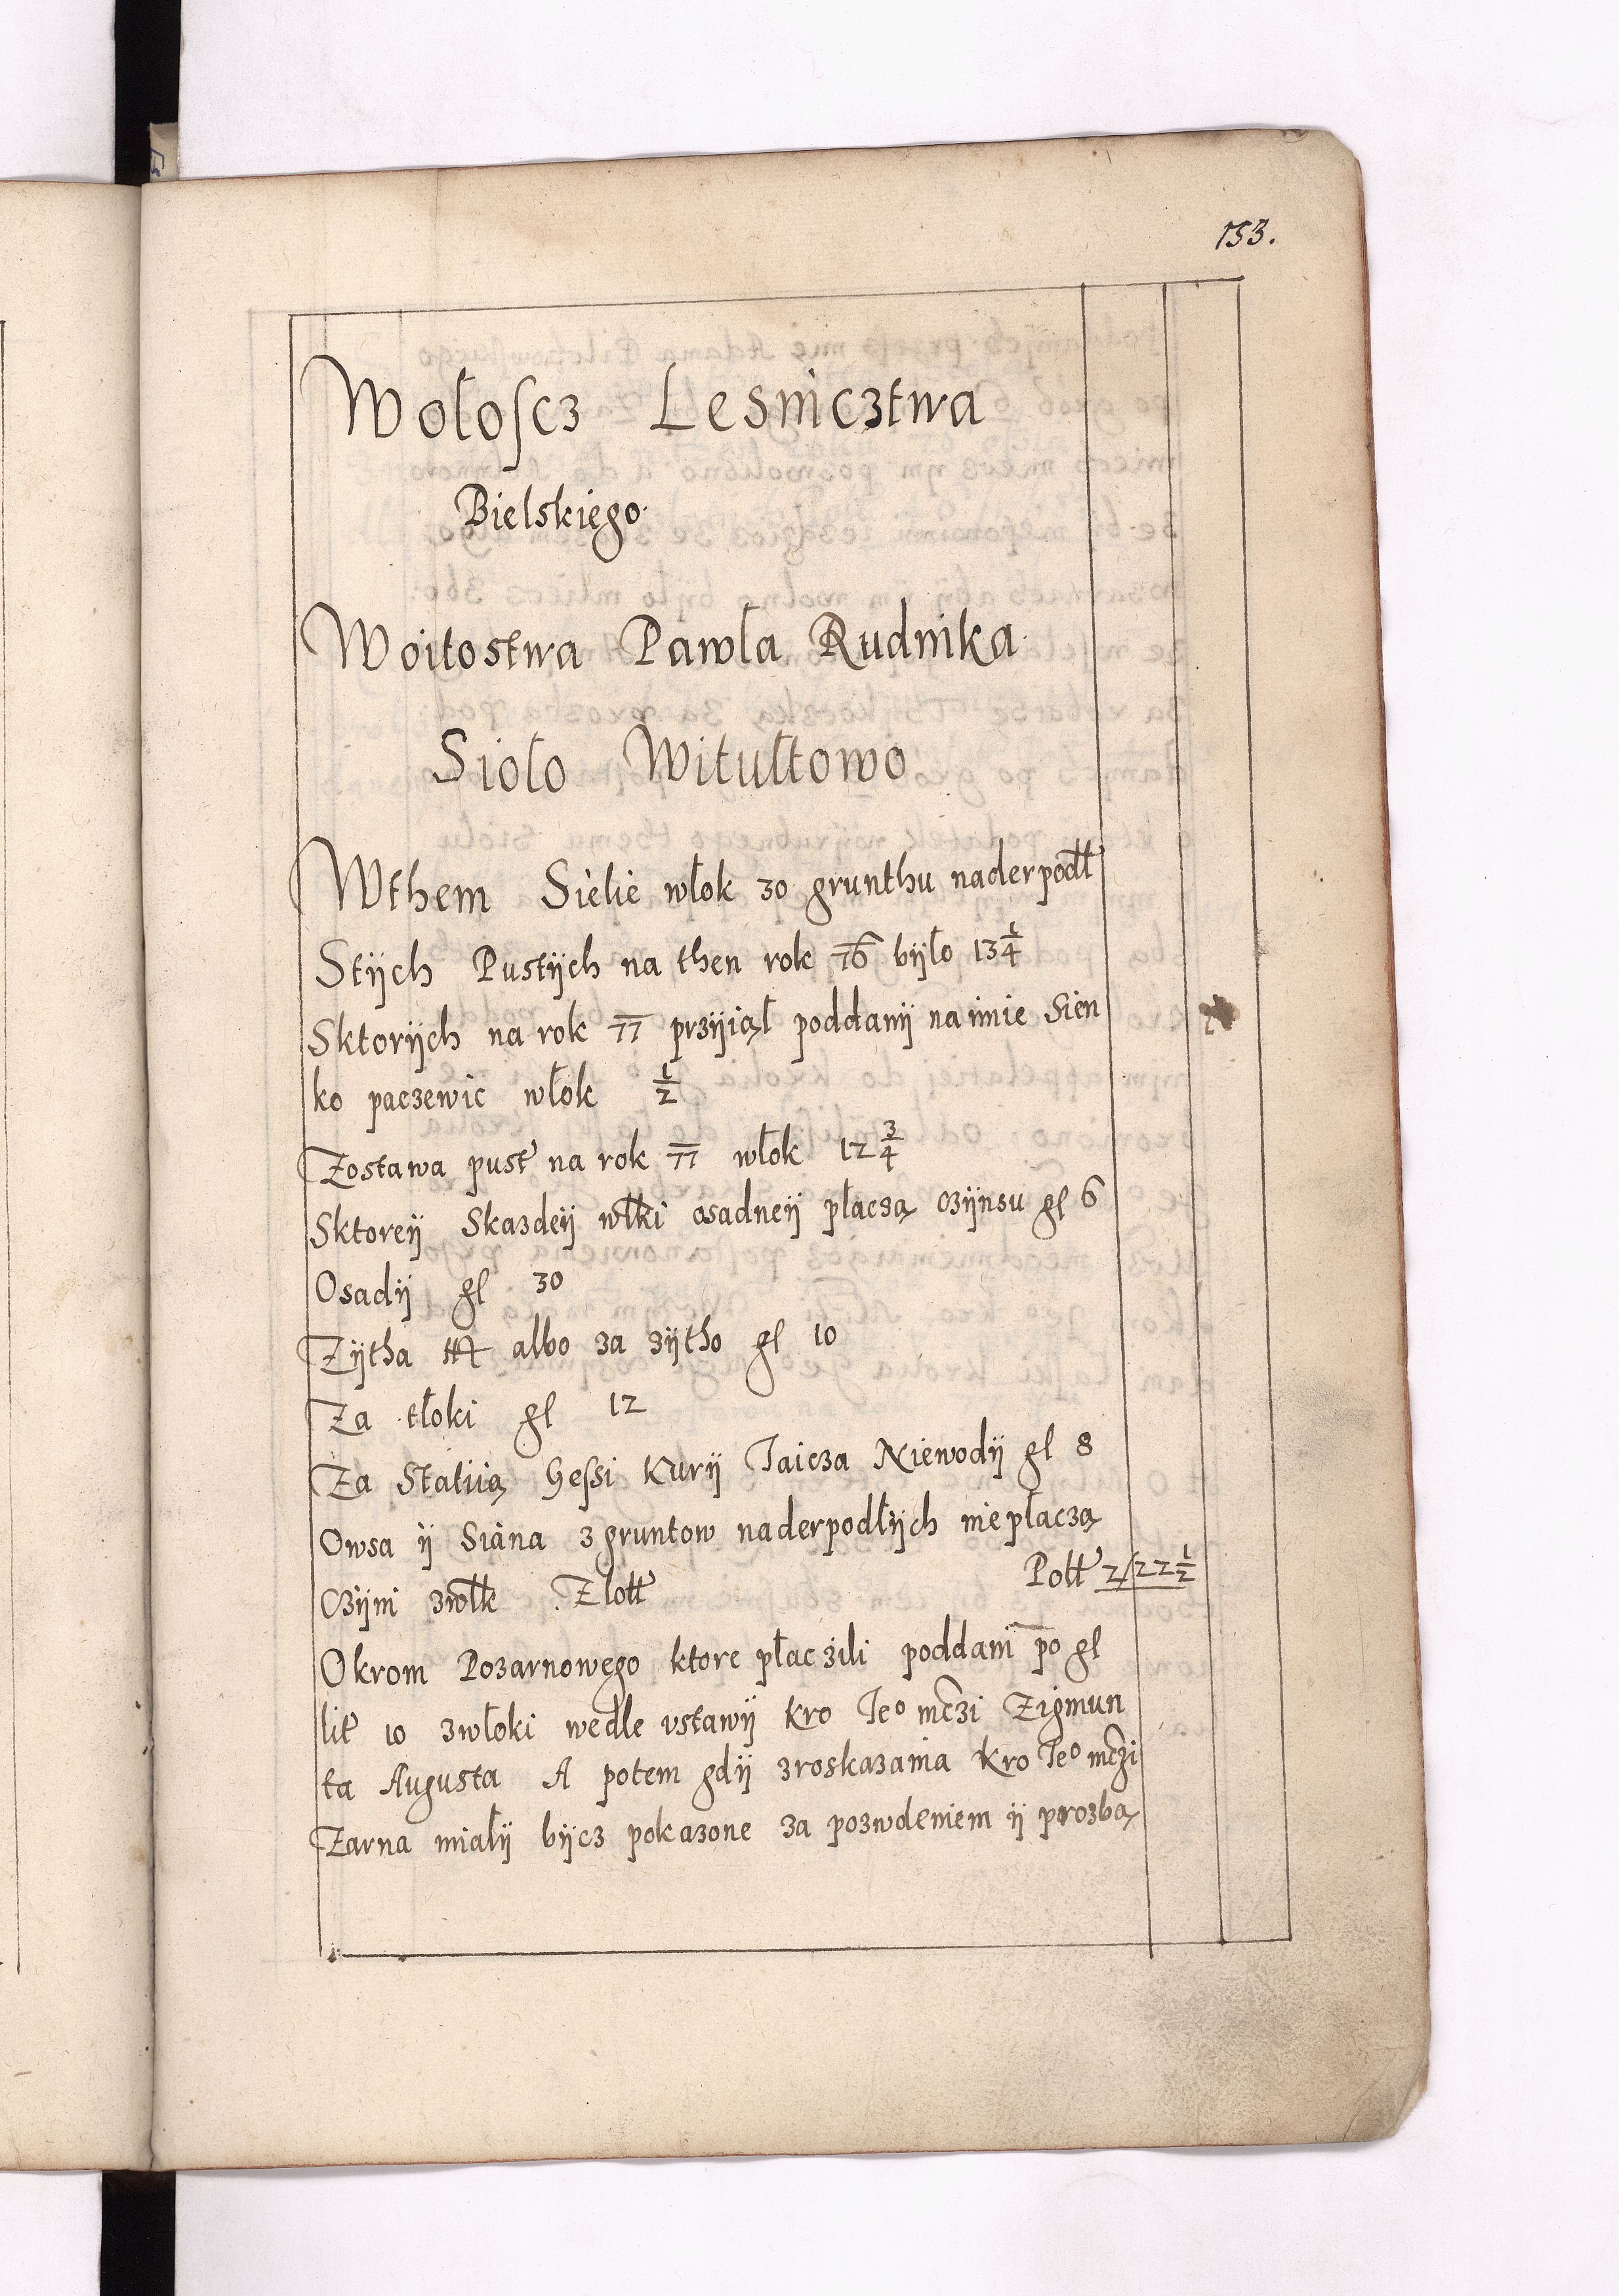 153.
Wołoscz Lesnicztwa
Bielskiego.
Woitostwa Pawla Rudnika.
Sioło Witułtowo
Wthem Sielie włok 30 grunthu naderpodłł
Stÿch Pustÿch na then rok 76 bÿło 13 1/4
Sktorÿch na rok 77 przÿiął poddanÿ na imie Sien
ko paczewic włok 1/2
Zostawa pust na rok 77 włok 12 3/4
Sktoreÿ Skazdeÿ włki osadneÿ płaczą czÿnsu gl 6
Osadÿ gl 30
Zÿtha albo za zÿtho gl 10
Za tłoki gl 12
Za Statiią Gessi Kurÿ Iaicza Niewodÿ gl 8
Owsa ÿ Siana z gruntow naderpodłÿch nie płaczą
Czÿni zwłk Zlott Połł 2/22 1/2
Okrom Pozarnowego ktore płaczili poddani po gl
lit 10 zwłoki wedle vstawÿ Kro Ieº mczi Zigmun
ta Augusta A potem gdÿ zroskazania Kro Ieº mczi
Zarna miałÿ bÿcz pokazone za pozwdeniem ÿ prozbą